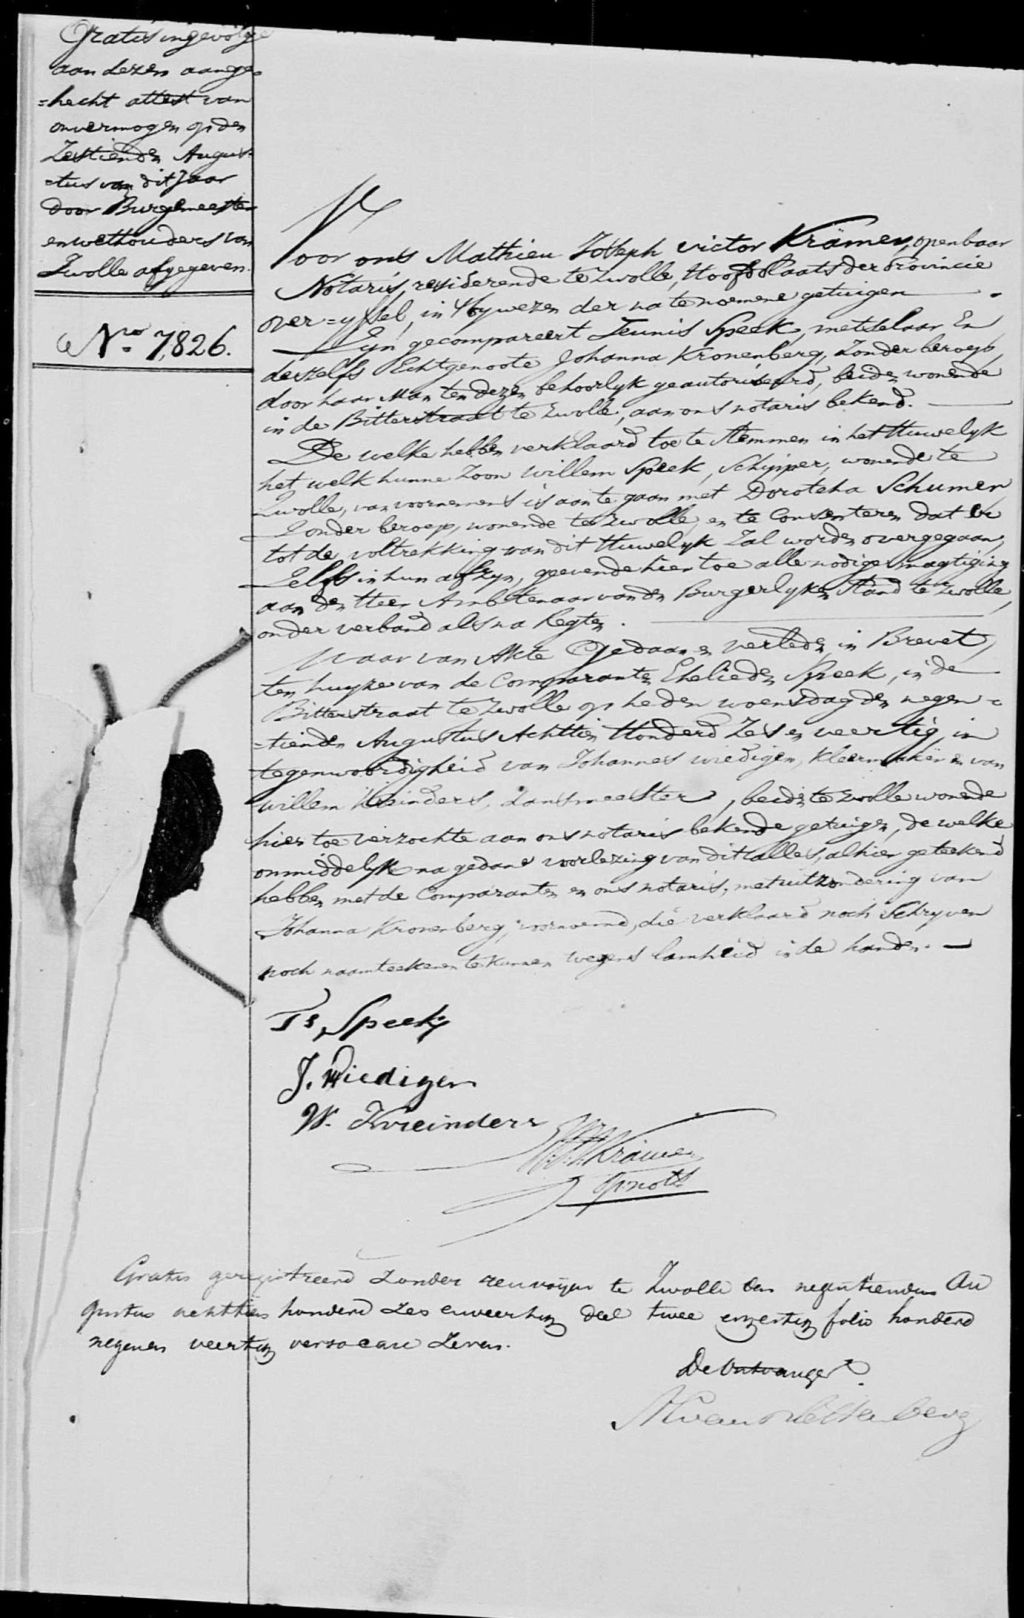 Gratis ingevolge
aan dezen aange-
=hecht attest van
onvermogen op den
Zestienden Augus-
=tus van dit Jaar
door Burgemeester
en wethouders van
Zwolle afgegeven.
No. 7,826.
Voor ons Mathieu Joseph victor Krämer, openbaar
Notaris, residerende te Zwolle, Hoofdplaats der Provincie
over=yssel, in bywezen der na te noemene getuigen
Zyn gecompareert Teunis Speek, metselaar En
deszelfs Echtgenoote Johanna Kronenberg, zonder beroep,
door haar Man ten dezen behoorlyk geautoriseerd, beiden wonende
in de Bitterstraat te Zwolle, aan ons notaris bekend.
De welke hebben verklaard toe te stemmen in het Huwelyk
het welk hunne Zoon willem Speek, Schipper, wonende te
Zwolle, van voornemens is aan te gaan met Dorothea Schumer
Zonder beroep, wonende te Zwolle, en te Consenteren dat er
tot de voltrekking van dit Huwelyk zal worden overgegaan,
Zelfs in hun afzyn, geevende hier toe alle nodige magtiging
aan den Heer Ambtenaar van den Burgerlyken Stand te Zwolle,
onder verband als na Regten.
Waar van Akte Gedaan en verleden in Brevet,
ten huyze van de Comparanten Ehelieden Speek, in de
Bitterstraat te Zwolle op heden woensdag den negen=
=tienden Augustus Achttien Honderd Zes en veertig, in
tegenwoordigheid van Johannes wiedigen, kleermaker en van
willem Kreinders, dansmeester, beide te Zwolle wonende
hier toe verzochte aan ons notaris bekende getuigen, de welke
onmiddelyk na gedane voorlezing van dit alles, alhier geteekend
hebben met de Comparanten en ons notaris, met uitzondering van
Johanna Kronenberg, voornoemd, die verklaard noch Schryven
noch naamteekenen te kunnen wegens lamheid in de handen.
Ts, Speek
J. Wiedigen
W. Kreinders
Krämer
Gratis geregistreerd zonder renvoyen te Zwolle den negentienden Au
gustus achttien honderd zes en veertig deel twee en zestig folio honderd
negen en veertig verso case zeven.
De Ontvanger